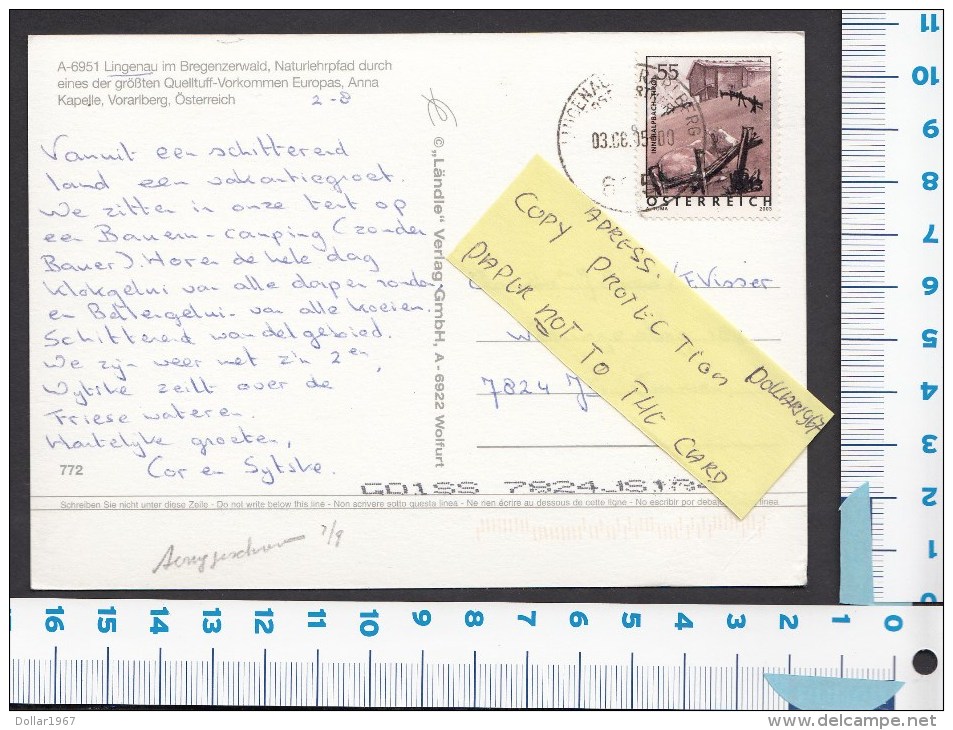 A-6951 Lingenau im Bregenzerwald, Naturlehrpfad durch
eines der größten Quelltuff-Vorkommen Europas, Anna
Kapelle, Vorarlberg, Österreich
2-8
Vanuit een schitterend
land een vakantiegroet.
We zitten in onze tent op
een Bauern-camping (zonder
Bauer). Horen de hele dag
klokgelui van alle dorpen rondom
en Bellengelui van alle koeien.
Schitterend wandelgebied.
We zijn weer met z'n 2en,
Wytske zeilt over de
Friese wateren.
Hartelijke groeten,
Cor en Sytske.
772
© „Ländle" Verlag-GmbH, A - 6922 Wolfurt
LINGENAU
03.08.05
55
INNERALPBACH-TIROL
ÖSTERREICH
2003
COPY ADRESS.
PROTECTion
PAPER NOT TO THE CARD
DOLLAR1967
E Visser
7824 J
7824JS
Schreiben Sie nicht unter diese Zeile - Do not write below this line - Non scrivere sotto questa linea - Ne rien écrire au dessous de cette ligne - No escribir por debajo linea
7/8
11
10
9
8
7
6
5
4
3
2
1
0
16 15 14 13 12 11 10 9 8 7 6 5 4 3 2 1 0
Dollar1967
www.delcampe.net